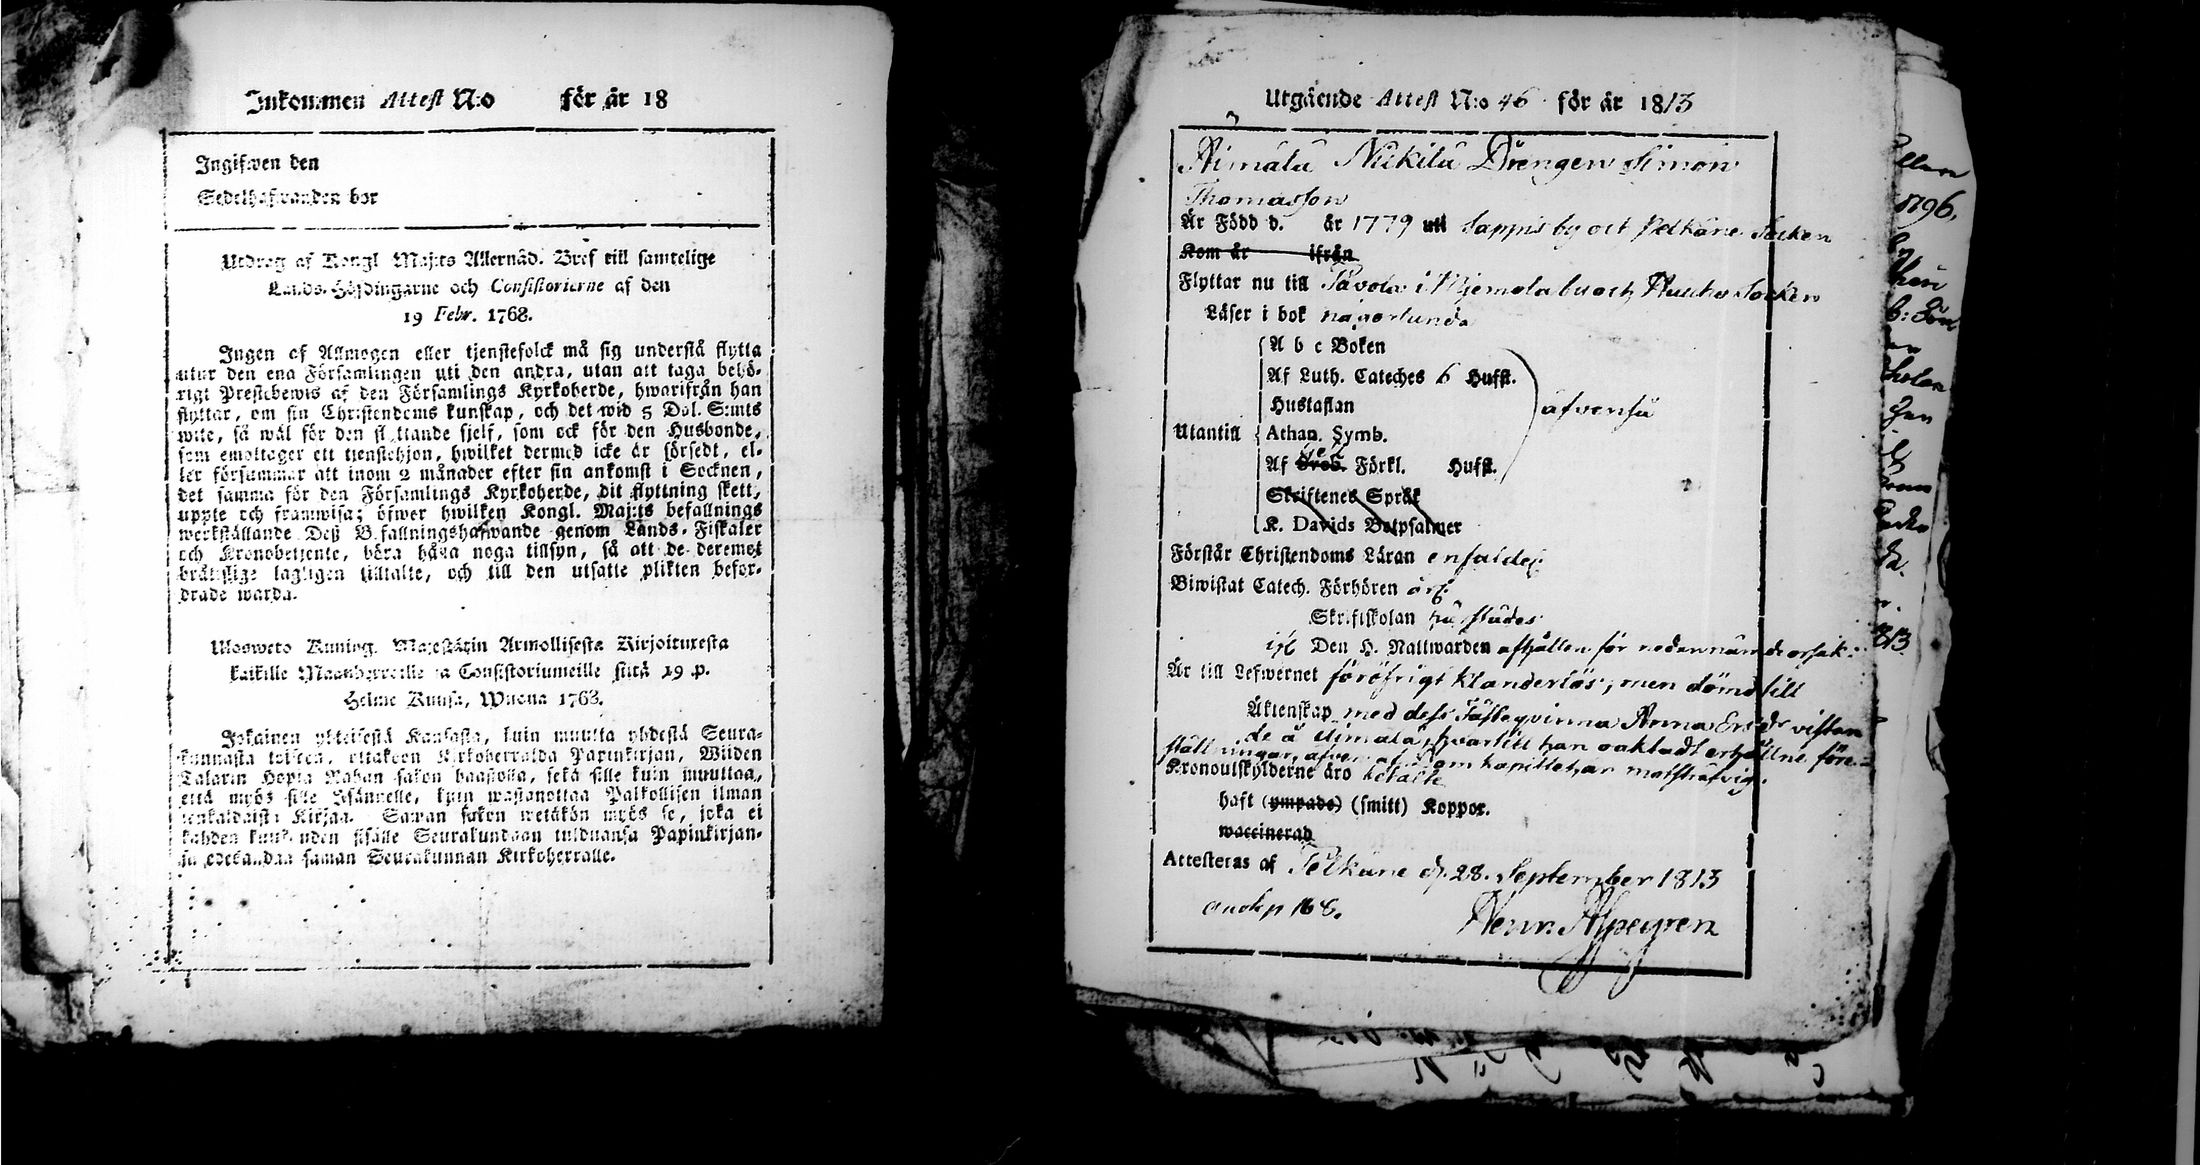 Inkommen Attest N:o för år 18
Ingifwen den
Sedelhafwanden bor
Utdrag af Kongl Maj:ts Allernåd. Bref till samtelige
Lands-Höfdingarne och Consistorierne af den
19 Febr. 1768.
Ingen af Allmogen eller tjenstefolck må sig understå flytta
utur den ena Församlingen uti den andra, utan att taga behö-
rigt Prestebewis af den Församlings Kyrkoherde, hwarifrån han
flyttar, om sin Christendoms kunskap, och det wid 5 Dal. S:mts
wite, så wäl för den flyttande sjelf, som ock för den Husbonde,
som emottager ett tjenstehjon, hwilket dermed icke är försedt, el-
ler försummar att inom 2 månader efter sin ankomst i Socknen,
det samma för den Församlings Kyrkoherde, dit flyttning skett,
uppte och framwisa; öfwer hwilken Kongl. Maj:ts befallnings
werkställande Deß Befallningshafwande genom Lands-Fiskaler
och Kronobetjente, böra hafwa noga tillsyn, så att de deremot
bråtslige lagligen tilltalte, och till den utsatte plikten befor-
drade warda.
Ulosweto Kuning. Majestätin Armollisesta Kirjoituxesta
kaikille Maanherroille ja Consistoriumeille siitä 19 p.
Helme Kuusa, Wuona 1768.
Jokainen yhteisestä Kansasta, kuin muutta yhdestä Seura-
kunnasta toiseen, ottakoon Kirkoherralda Papinkirjan, Wiiden
Talarin Hopia Rahan sakon haastolla, sekä sille kuin muuttaa,
että myös sille Isännelle, kuin wastanottaa Palkollisen ilman
senkaldaista Kirjaa. Saman sakon wetäkön myös se, joka ei
kahden kuukauden sisälle Seurakundaan tulduansa Papinkirjan-
sa edesandaa saman Seurakunnan Kirkoherralle.
Utgående Attest N:o 46 för år 1813
Äimälä Nickilä Drengen Simon
Thomasson
Är Född d. år 1779 uti Sappis by och Pelkäne Socken
Kom år ifrån
Flyttar nu till Pavola i by och Socken
Läser i bok någorlunda
A b c Boken
Af Luth. Cateches 6 Hufst.
Hustaflan
äfvenså
Utantill
Athan. Symb.
Af Förkl. Hufst.
Skriftenes Språk
K. Davids Botpsalmer
Förstår Christendoms Läran enfaldeg
Biwistat Catech. Förhören
Skriftskolan
Den H. Nattwarden afhållen för nedannämde orsak:
Är till Lefwernet föröfrigt klanderlös; men dömd till
Äktenskap med dess Fästeqvinna Anna vistan
de å Äimälä, hvartill han oaktadt erhållne före-
ställningar, äfven af Domkapitlet, är motsträfvig.
Kronoutskylderne äro betalte
haft (ympade) (smitt) Koppor.
waccinerad
Attesteras af Pelkäne d. 28. September 1813
Henr. Alpegren